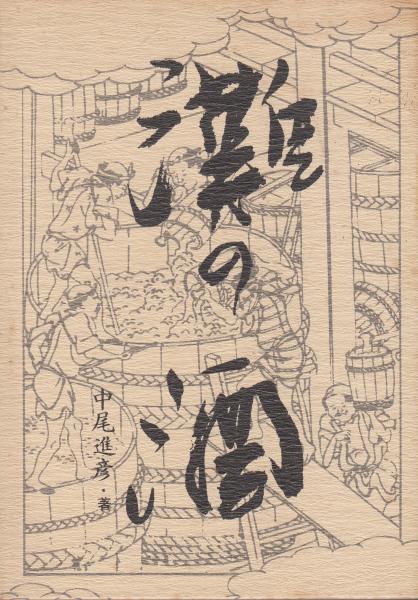 灘の酒
中尾進彦・著